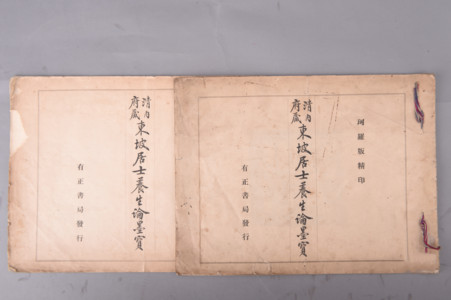 珂羅版精印
清内
府藏
東坡居士養生論墨寶
有正書局發行
清内
府藏
東坡居士養生論墨寶
有正書局發行